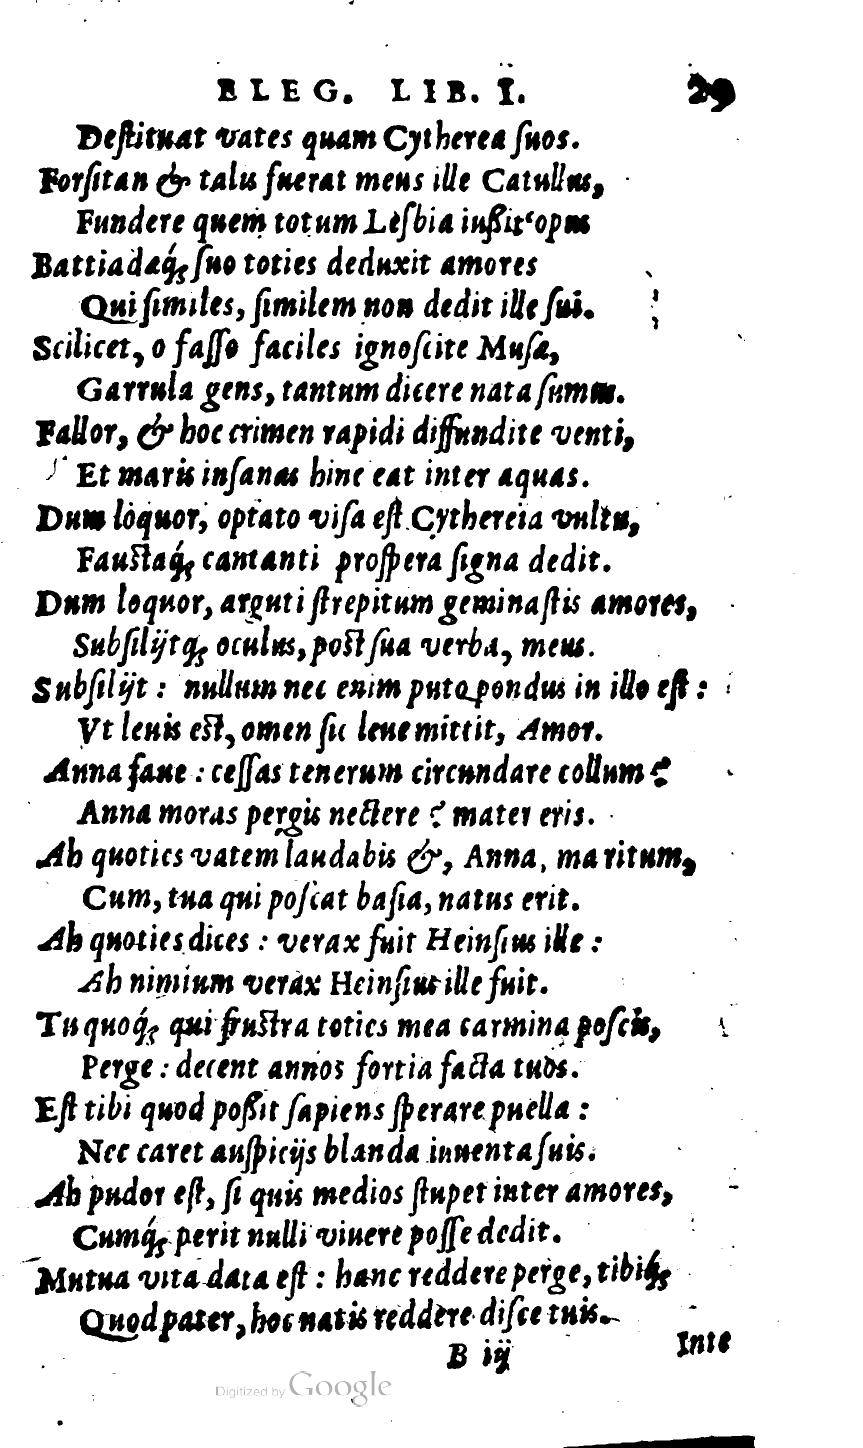 ELEG. LIB. I. 29
Deſtituat vates quam Cytherea ſuos.
Forſitan & talis fuerat meus ille Catullus,
Fundere quem totum Lesbia iußit opus
Battiadaq́; ſuo toties deduxit amores
Qui ſimiles, ſimilem non dedit ille ſui.
Scilicet, o faſſo faciles ignoſcite Muſæ,
Garrula gens, tantum dicere nata ſumus.
Fallor, & hoc crimen rapidi diffundite venti,
Et maris inſanas hinc eat inter aquas.
Dum loquor, optato viſa eſt Cythereia vultu,
Fauſtaq́; cantanti proſpera ſigna dedit.
Dum loquor, arguti ſtrepitum geminaſtis amores,
Subſilijtq; oculus, poſt ſua verba, meus.
Subſilijt : nullum nec enim puto pondus in illo eſt :
Vt leuis eſt, omen ſic leue mittit, Amor.
Anna faue : ceſſas tenerum circundare collum ?
Anna moras pergis nectere ? mater eris.
Ah quoties vatem laudabis &, Anna, maritum,
Cum, tua qui poſcat baſia, natus erit.
Ah quoties dices : verax fuit Heinſius ille :
Ah nimium verax Heinſius ille fuit.
Tu quoq́; qui fruſtra toties mea carmina poſcis,
Perge : decent annos fortia facta tuos.
Eſt tibi quod poßit ſapiens ſperare puella :
Nec caret auſpicijs blanda iuuenta ſuis.
Ah pudor eſt, ſi quis medios ſtupet inter amores,
Cumq́; perit nulli viuere poſſe dedit.
Mutua vita data eſt : hanc reddere perge, tibiq́;
Quod pater, hoc natis reddere diſce tuis.
B iij
Inte
Digitized by Google